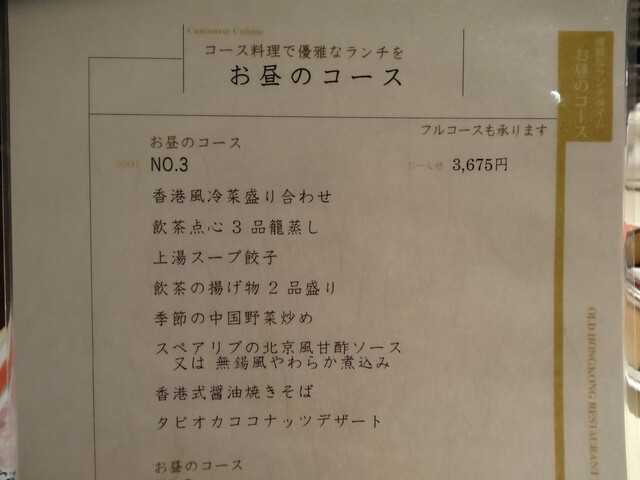 Cantonese Cuisine
コース料理で優雅なランチを
お昼のコース
フルコースも承ります
お昼のコース
3501 NO.3 お一人様 3,675円
香港風冷菜盛り合わせ
飲茶点心 3 品籠蒸し
上湯スープ餃子
飲茶の揚げ物 2 品盛り
季節の中国野菜炒め
スペアリブの北京風甘酢ソース
又は 無錫風やわらか煮込み
香港式醤油焼きそば
タピオカココナッツデザート
お昼のコース
お昼のコース
OLD HONGKONG RESTAURANT